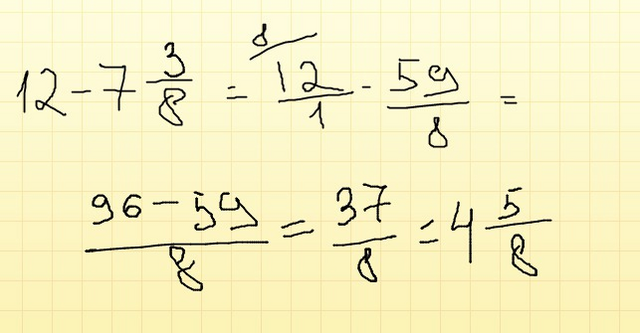 12 - 7 3/8 = 12/1 ⁸ - 59/8 =
96 - 59/8 = 37/8 = 4 5/8